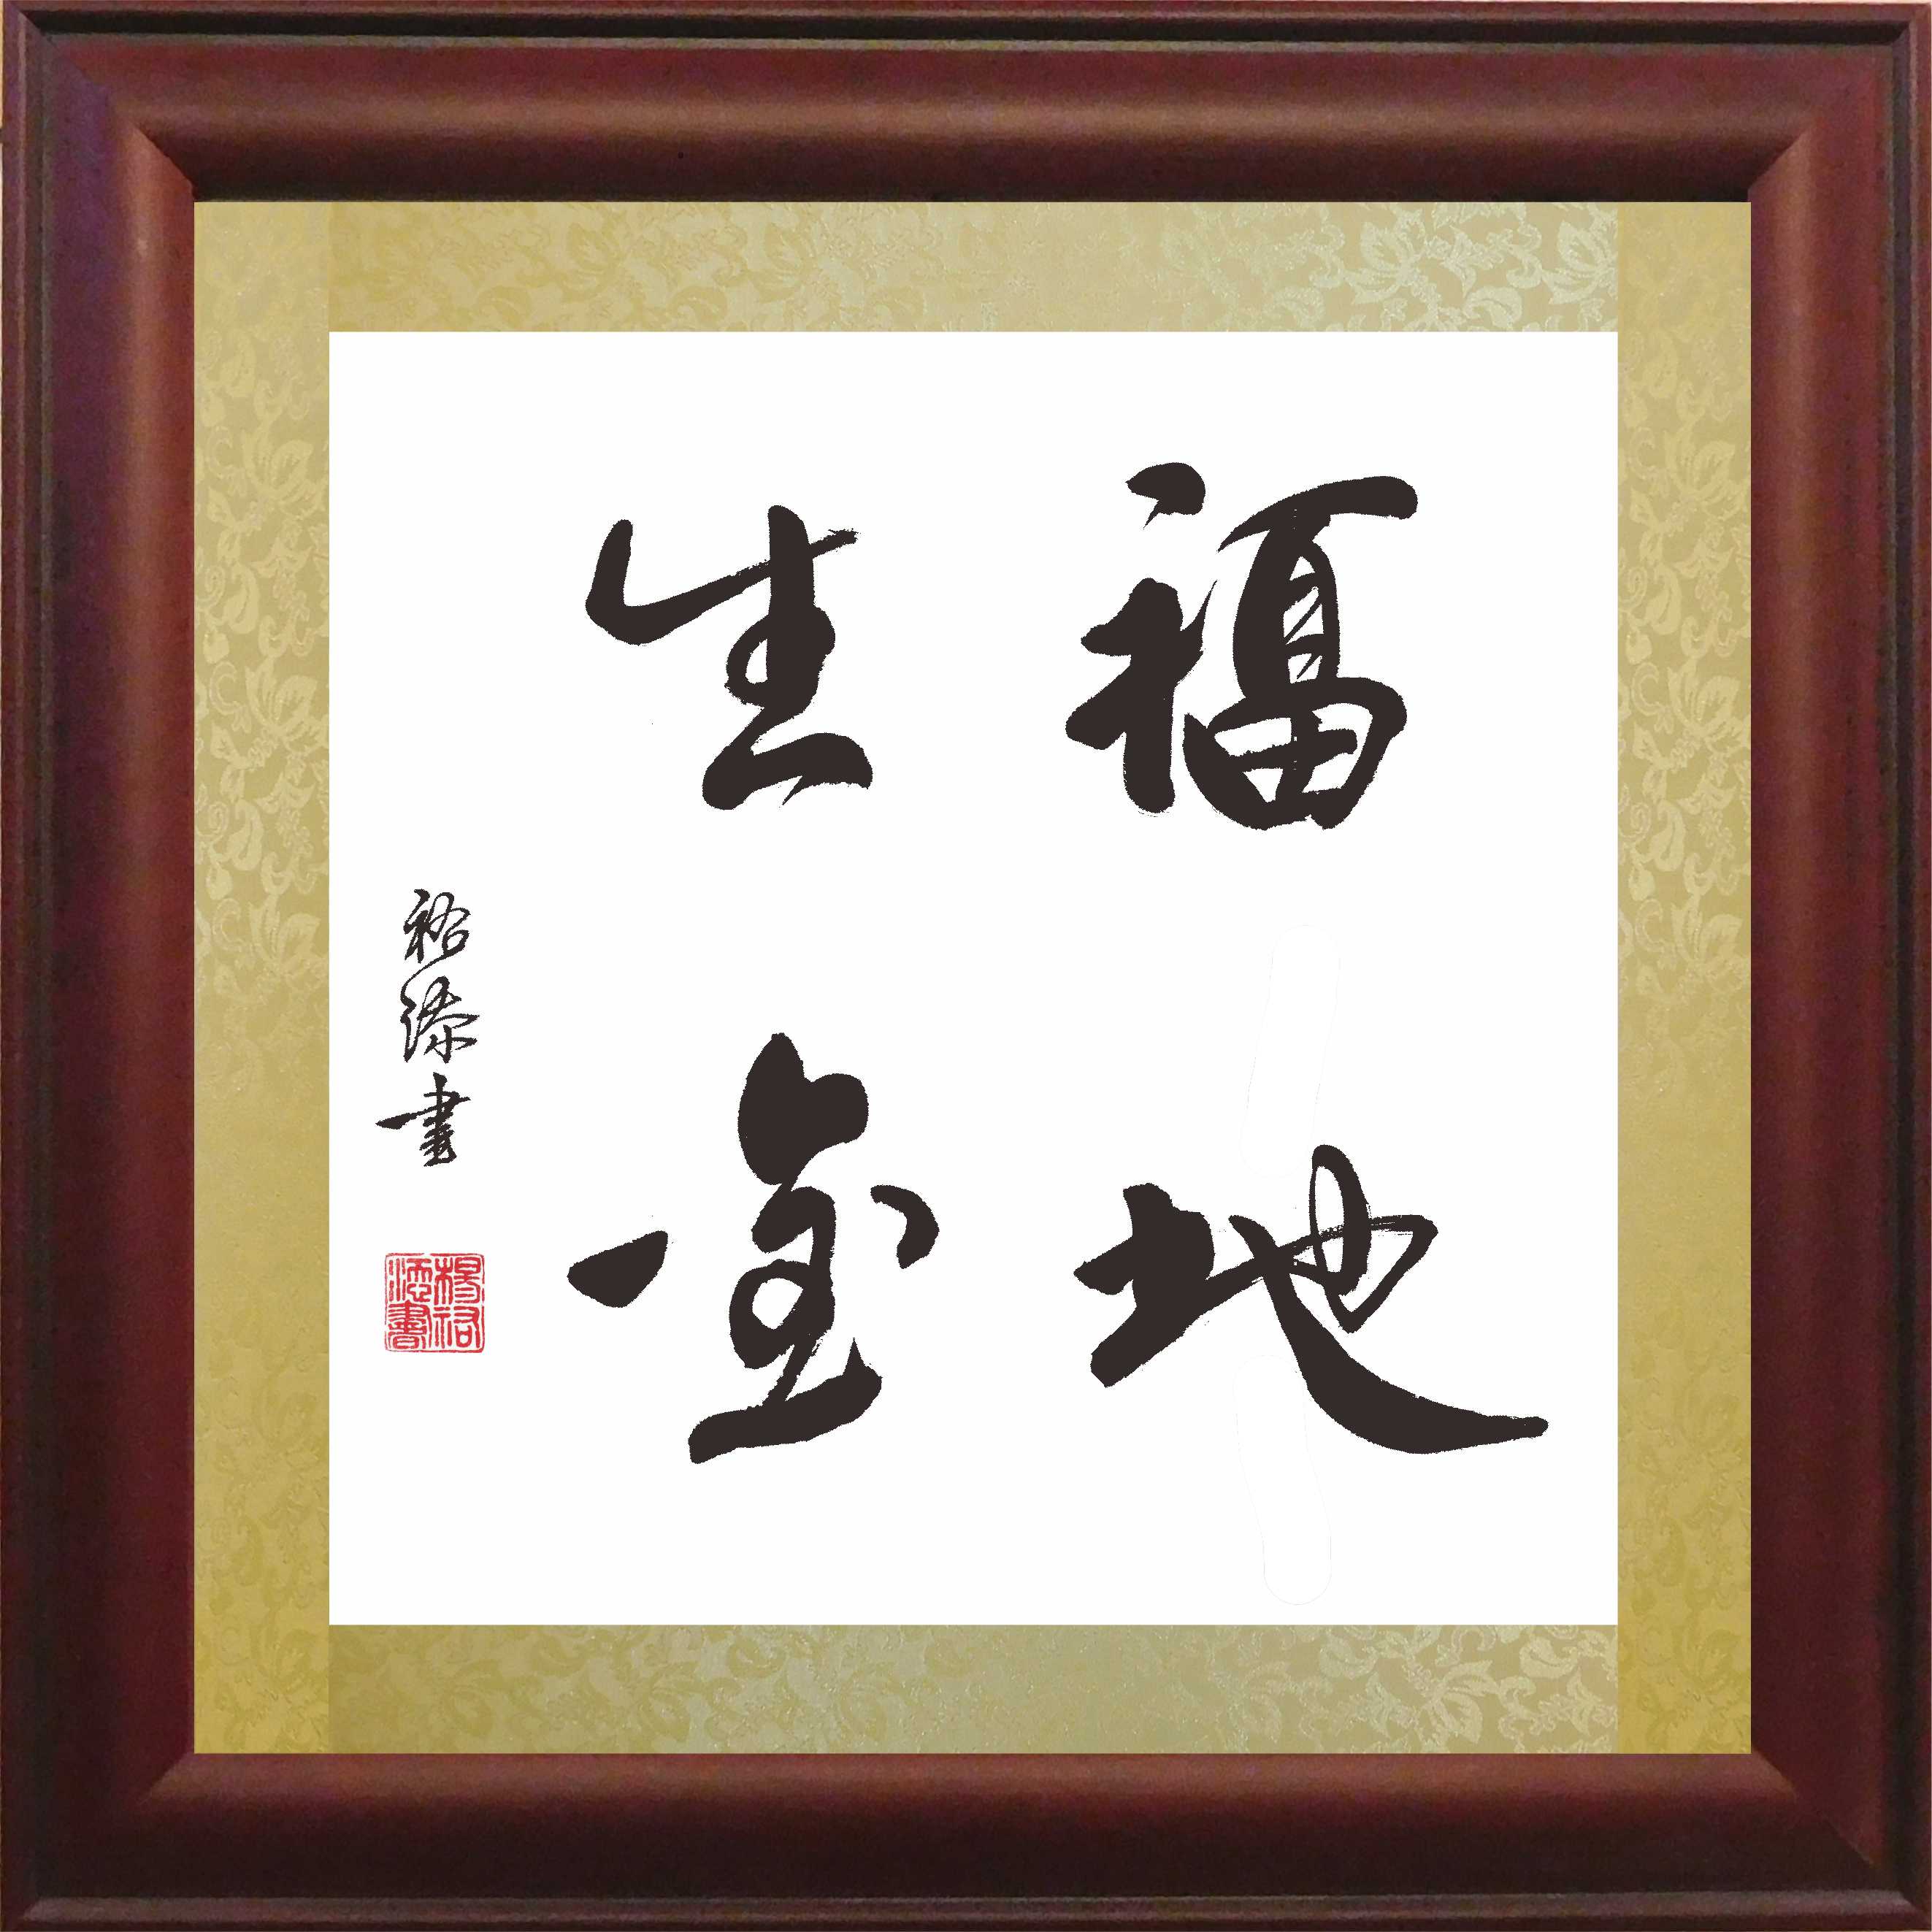 福地
生金
裕添書
楊裕
添書